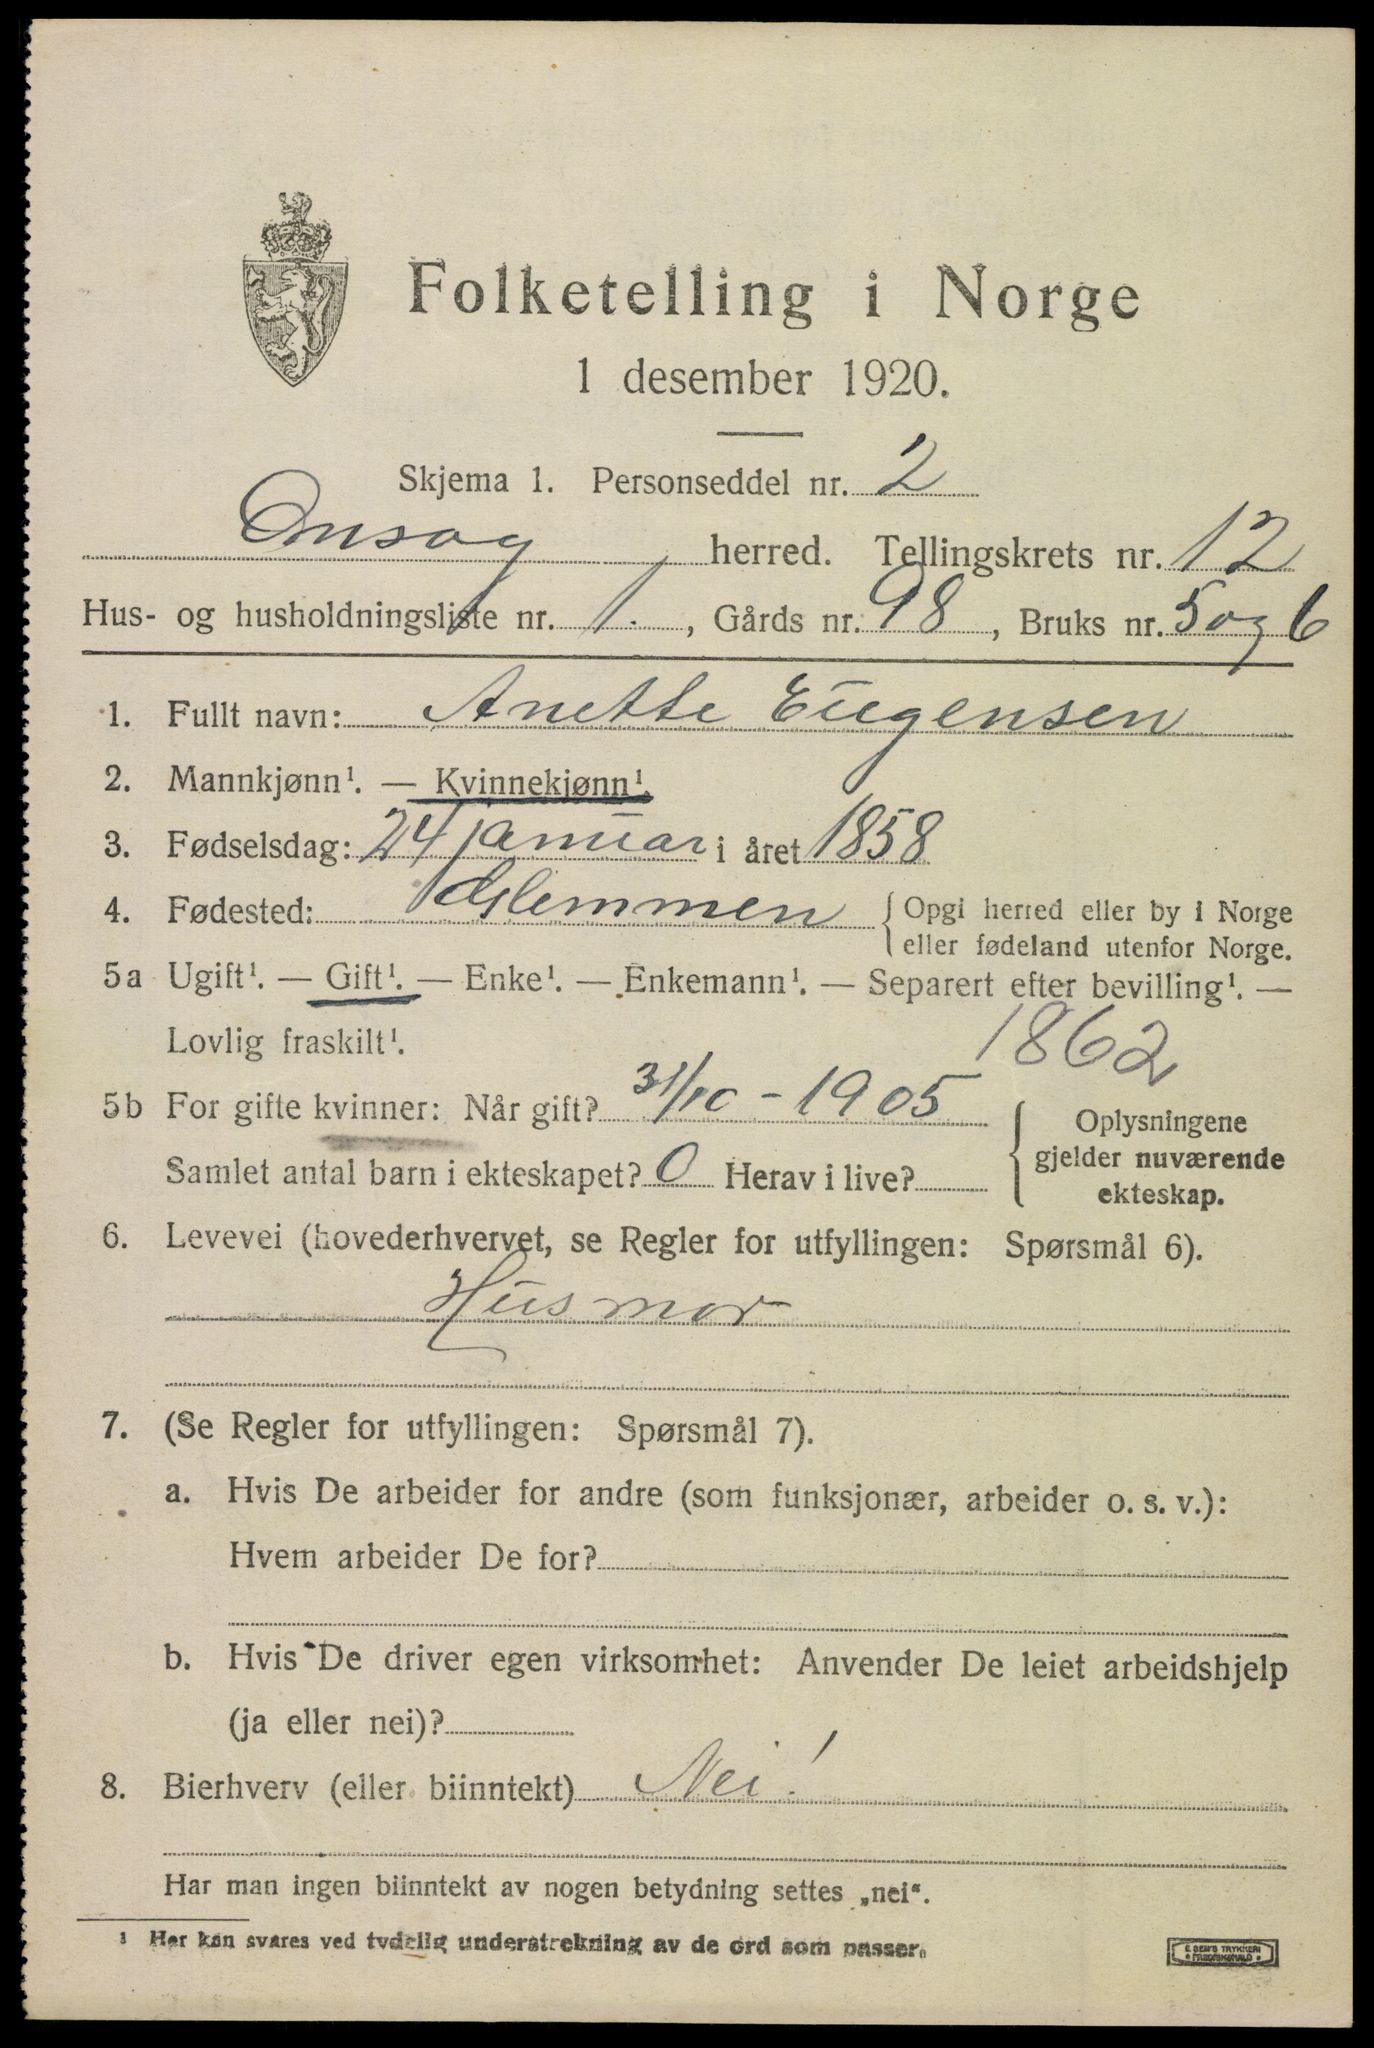 Folketelling i Norge
1 desember 1920.
Skjema 1. Personseddel nr. 2
Onsøy herred. Tellingskrets nr. 12
Hus- og husholdningsliste nr. 1. , Gårds nr. 98 , Bruks nr. 5 og 6
1. Fullt navn: Anette Eugensen
2. Mannkjønn¹. — Kvinnekjønn¹.
3. Fødselsdag: 24 januar i året 1858
4. Fødested: Glemmen { Opgi herred eller by i Norge
eller fødeland utenfor Norge.
5a Ugift¹. — Gift¹. — Enke¹. — Enkemann¹. — Separert efter bevilling¹. —
Lovlig fraskilt¹. 1862
5b For gifte kvinner: Når gift? 31/10 - 1905
Samlet antal barn i ekteskapet? 0 Herav i live?
{ Oplysningene
gjelder nuværende
ekteskap.
6. Levevei (hovederhvervet, se Regler for utfyllingen: Spørsmål 6).
Husmor
7. (Se Regler for utfyllingen: Spørsmål 7).
a. Hvis De arbeider for andre (som funksjonær, arbeider o. s. v.):
Hvem arbeider De for?
b. Hvis De driver egen virksomhet: Anvender De leiet arbeidshjelp
(ja eller nei)?
8. Bierhverv (eller biinntekt) Nei!
Har man ingen biinntekt av nogen betydning settes „nei“.
¹ Her kan svares ved tydelig understrekning av de ord som passer.
E. SEM'S TRYKKERI
FREDRIKSHALD